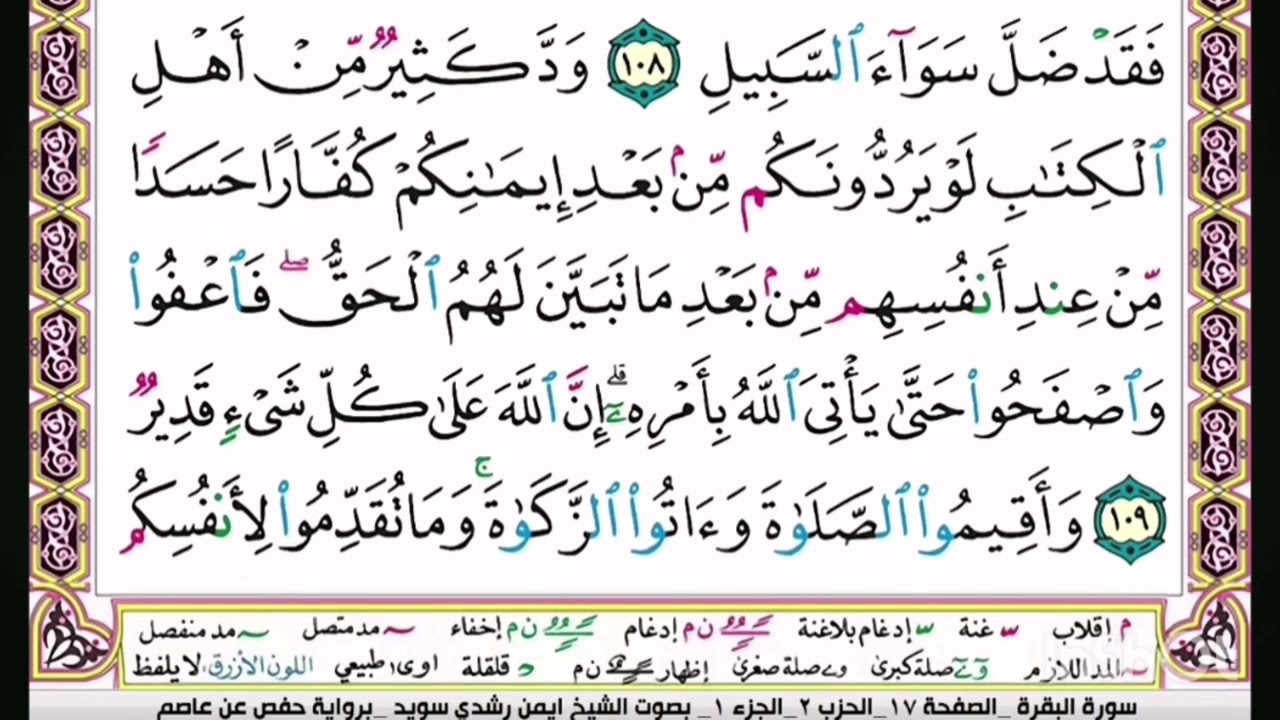 فَقَدْ ضَلَّ سَوَآءَ ٱلسَّبِيلِ ١٠٨ وَدَّ كَثِيرٌ مِّنْ أَهْلِ
ٱلْكِتَٰبِ لَوْ يَرُدُّونَكُم مِّنۢ بَعْدِ إِيمَٰنِكُمْ كُفَّارًا حَسَدًا
مِّنْ عِندِ أَنفُسِهِم مِّنۢ بَعْدِ مَا تَبَيَّنَ لَهُمُ ٱلْحَقُّ ۖ فَٱعْفُوا۟
وَٱصْفَحُوا۟ حَتَّىٰ يَأْتِىَ ٱللَّهُ بِأَمْرِهِۦٓ ۗ إِنَّ ٱللَّهَ عَلَىٰ كُلِّ شَىْءٍ قَدِيرٌ
١٠٩ وَأَقِيمُوا۟ ٱلصَّلَوٰةَ وَءَاتُوا۟ ٱلزَّكَوٰةَ ۚ وَمَا تُقَدِّمُوا۟ لِأَنفُسِكُم
م إقلاب غنة إدغام بلاغنة ن م إدغام ن م إخفاء مد متصل مد منفصل
المد اللازم صلة كبرى صلة صغرى إظهار ن م قلقلة اوى طبيعي اللون الأزرق لا يلفظ
سورة البقرة _ الصفحة ١٧_ الحزب ٢_ الجزء ١_ بصوت الشيخ ايمن رشدي سويد _برواية حفص عن عاصم